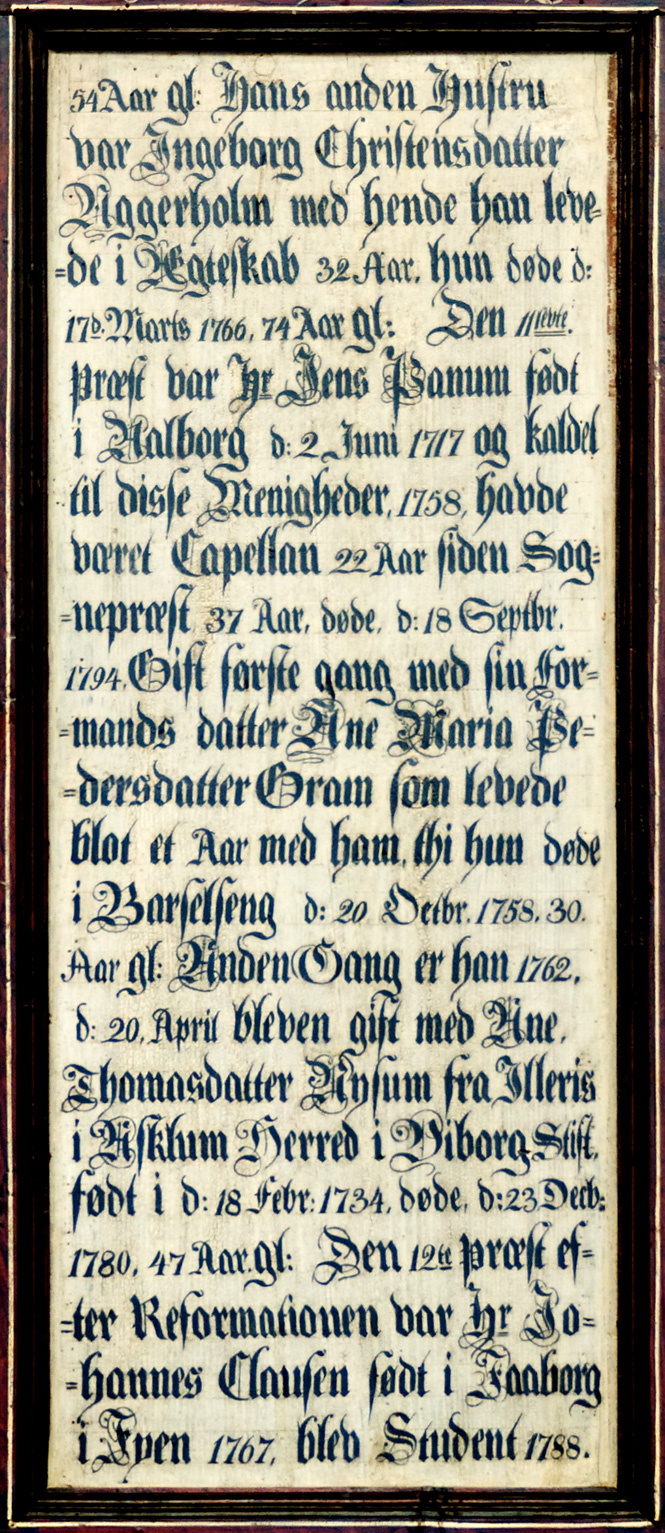 54 Aar gl: Hans anden Hustru
var Ingeborg Christensdatter
Aggerholm med hende han leve=
=de i Ægteskab 32 Aar, hun døde d:
17d. Marts 1766, 74 Aar gl: Den 11tevte.
præst var Hr Jens Panum født
i Aalborg d: 2 Juni 1717 og kaldet
til disse Menigheder, 1758, havde
været Capellan 22 Aar siden Sog=
=nepræst 37 Aar, døde, d: 18 Septbr.
1794. Gift første gang med sin For=
=mands datter Ane Maria Pe=
=dersdatter Gram som levede
blot et Aar med ham, thi hun døde
i Barselseng d: 20 Octbr. 1758. 30.
Aar gl: Anden Gang er han 1762,
d: 20, April bleven gift med Ane,
Thomasdatter Nysum fra Illeris
i Asklum Herred i Viborg Stift,
født i d: 18 Febr: 1734, døde, d: 23 Decb:
1780, 47 Aar. gl: Den 12te præst ef=
=ter Reformationen var Hr Jo=
=hannes Clausen født i Faaborg
i Fyen 1767, blev Student 1788.